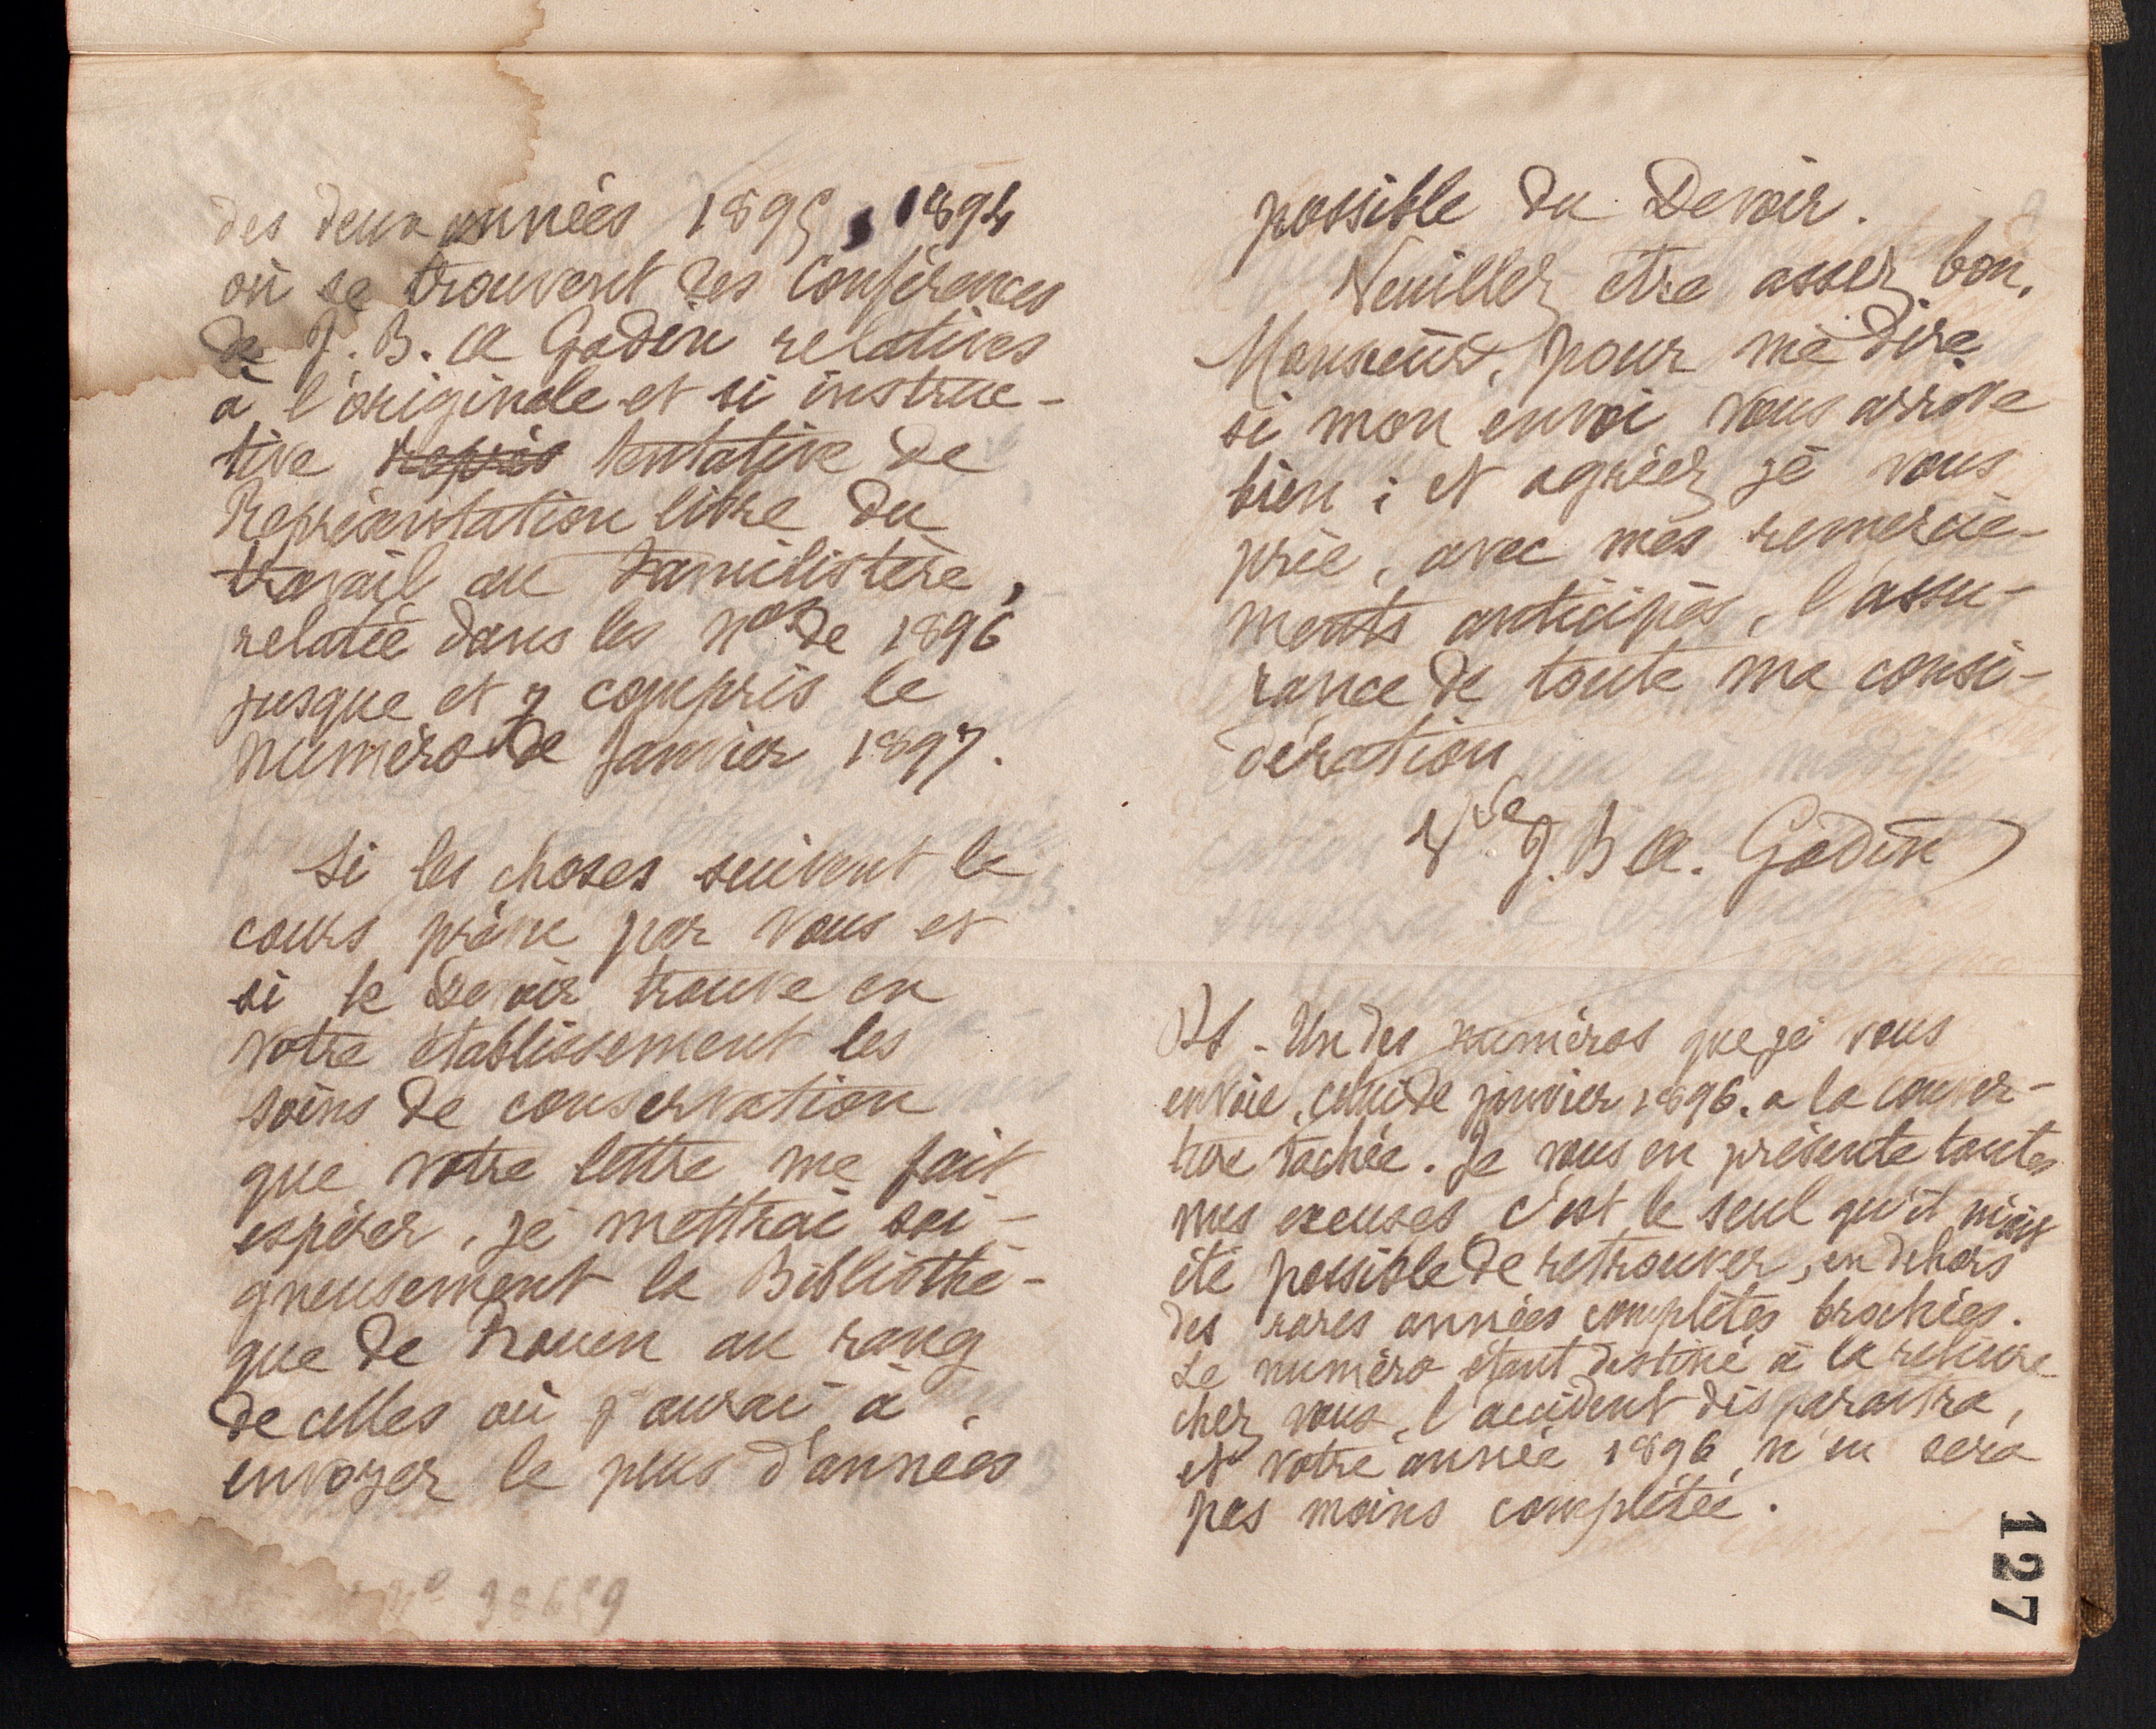 des deux années 1895, 1894
où se trouvent des Conférences
de J. B. A Godin relatives
à l'originale et si instruc-
tive repris tentative de
Représentation libre du
travail au Familistère,
relatée dans les nos de 1896
jusque et y compris le
numéro de Janvier 1897.
Si les choses suivent le
cours prévu par vous et
si le Devoir trouve en
votre établissement les
soins de conservation
que votre lettre me fait
espérer, je mettrai soi-
gneusement la Bibliothè-
que de Rouen au rang
de celles où j'aurai à
envoyer le plus d'années
possible du Devoir.
Veuillez être assez bon,
Monsieur, pour me dire
si mon envoi vous arrive
bien ; et agréez je vous
prie, avec mes remercie-
ments anticipés, l'assu-
rance de toute ma consi-
dération
Vve J. B A. Godin
PS - Un des numéros que je vous
envoie, celui de janvier 1896. a la couver-
ture tachée. Je vous en présente toutes
mes excuses c'est le seul qu'il m'ait
été possible de retrouver, en dehors
des rares années complètes brochées.
Le numéro étant destiné à la reliure
chez vous, l'accident disparaîtra,
et votre année 1896 n'en sera
pas moins complétée.
127